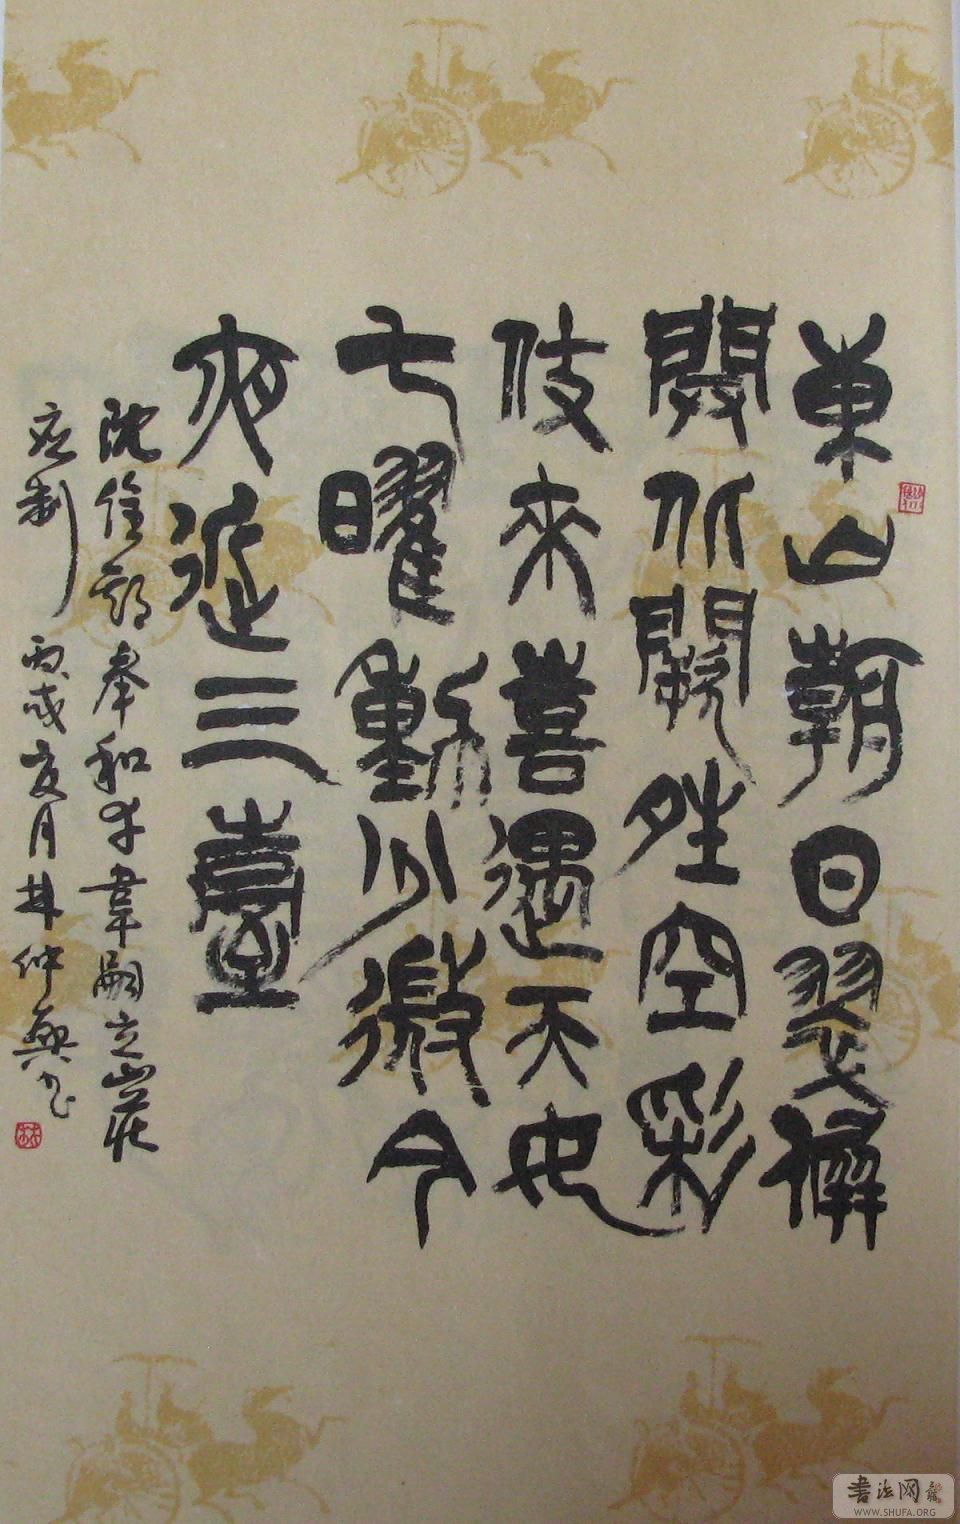 東山朝日翠屏
開北闕晴空彩
仗來喜遇天文
七曜動少微今
夜近三臺
沈佺期奉和幸韋嗣立山莊
應制 丙戌夏月林仲興書
書法网
WWW.SHUFA.ORG